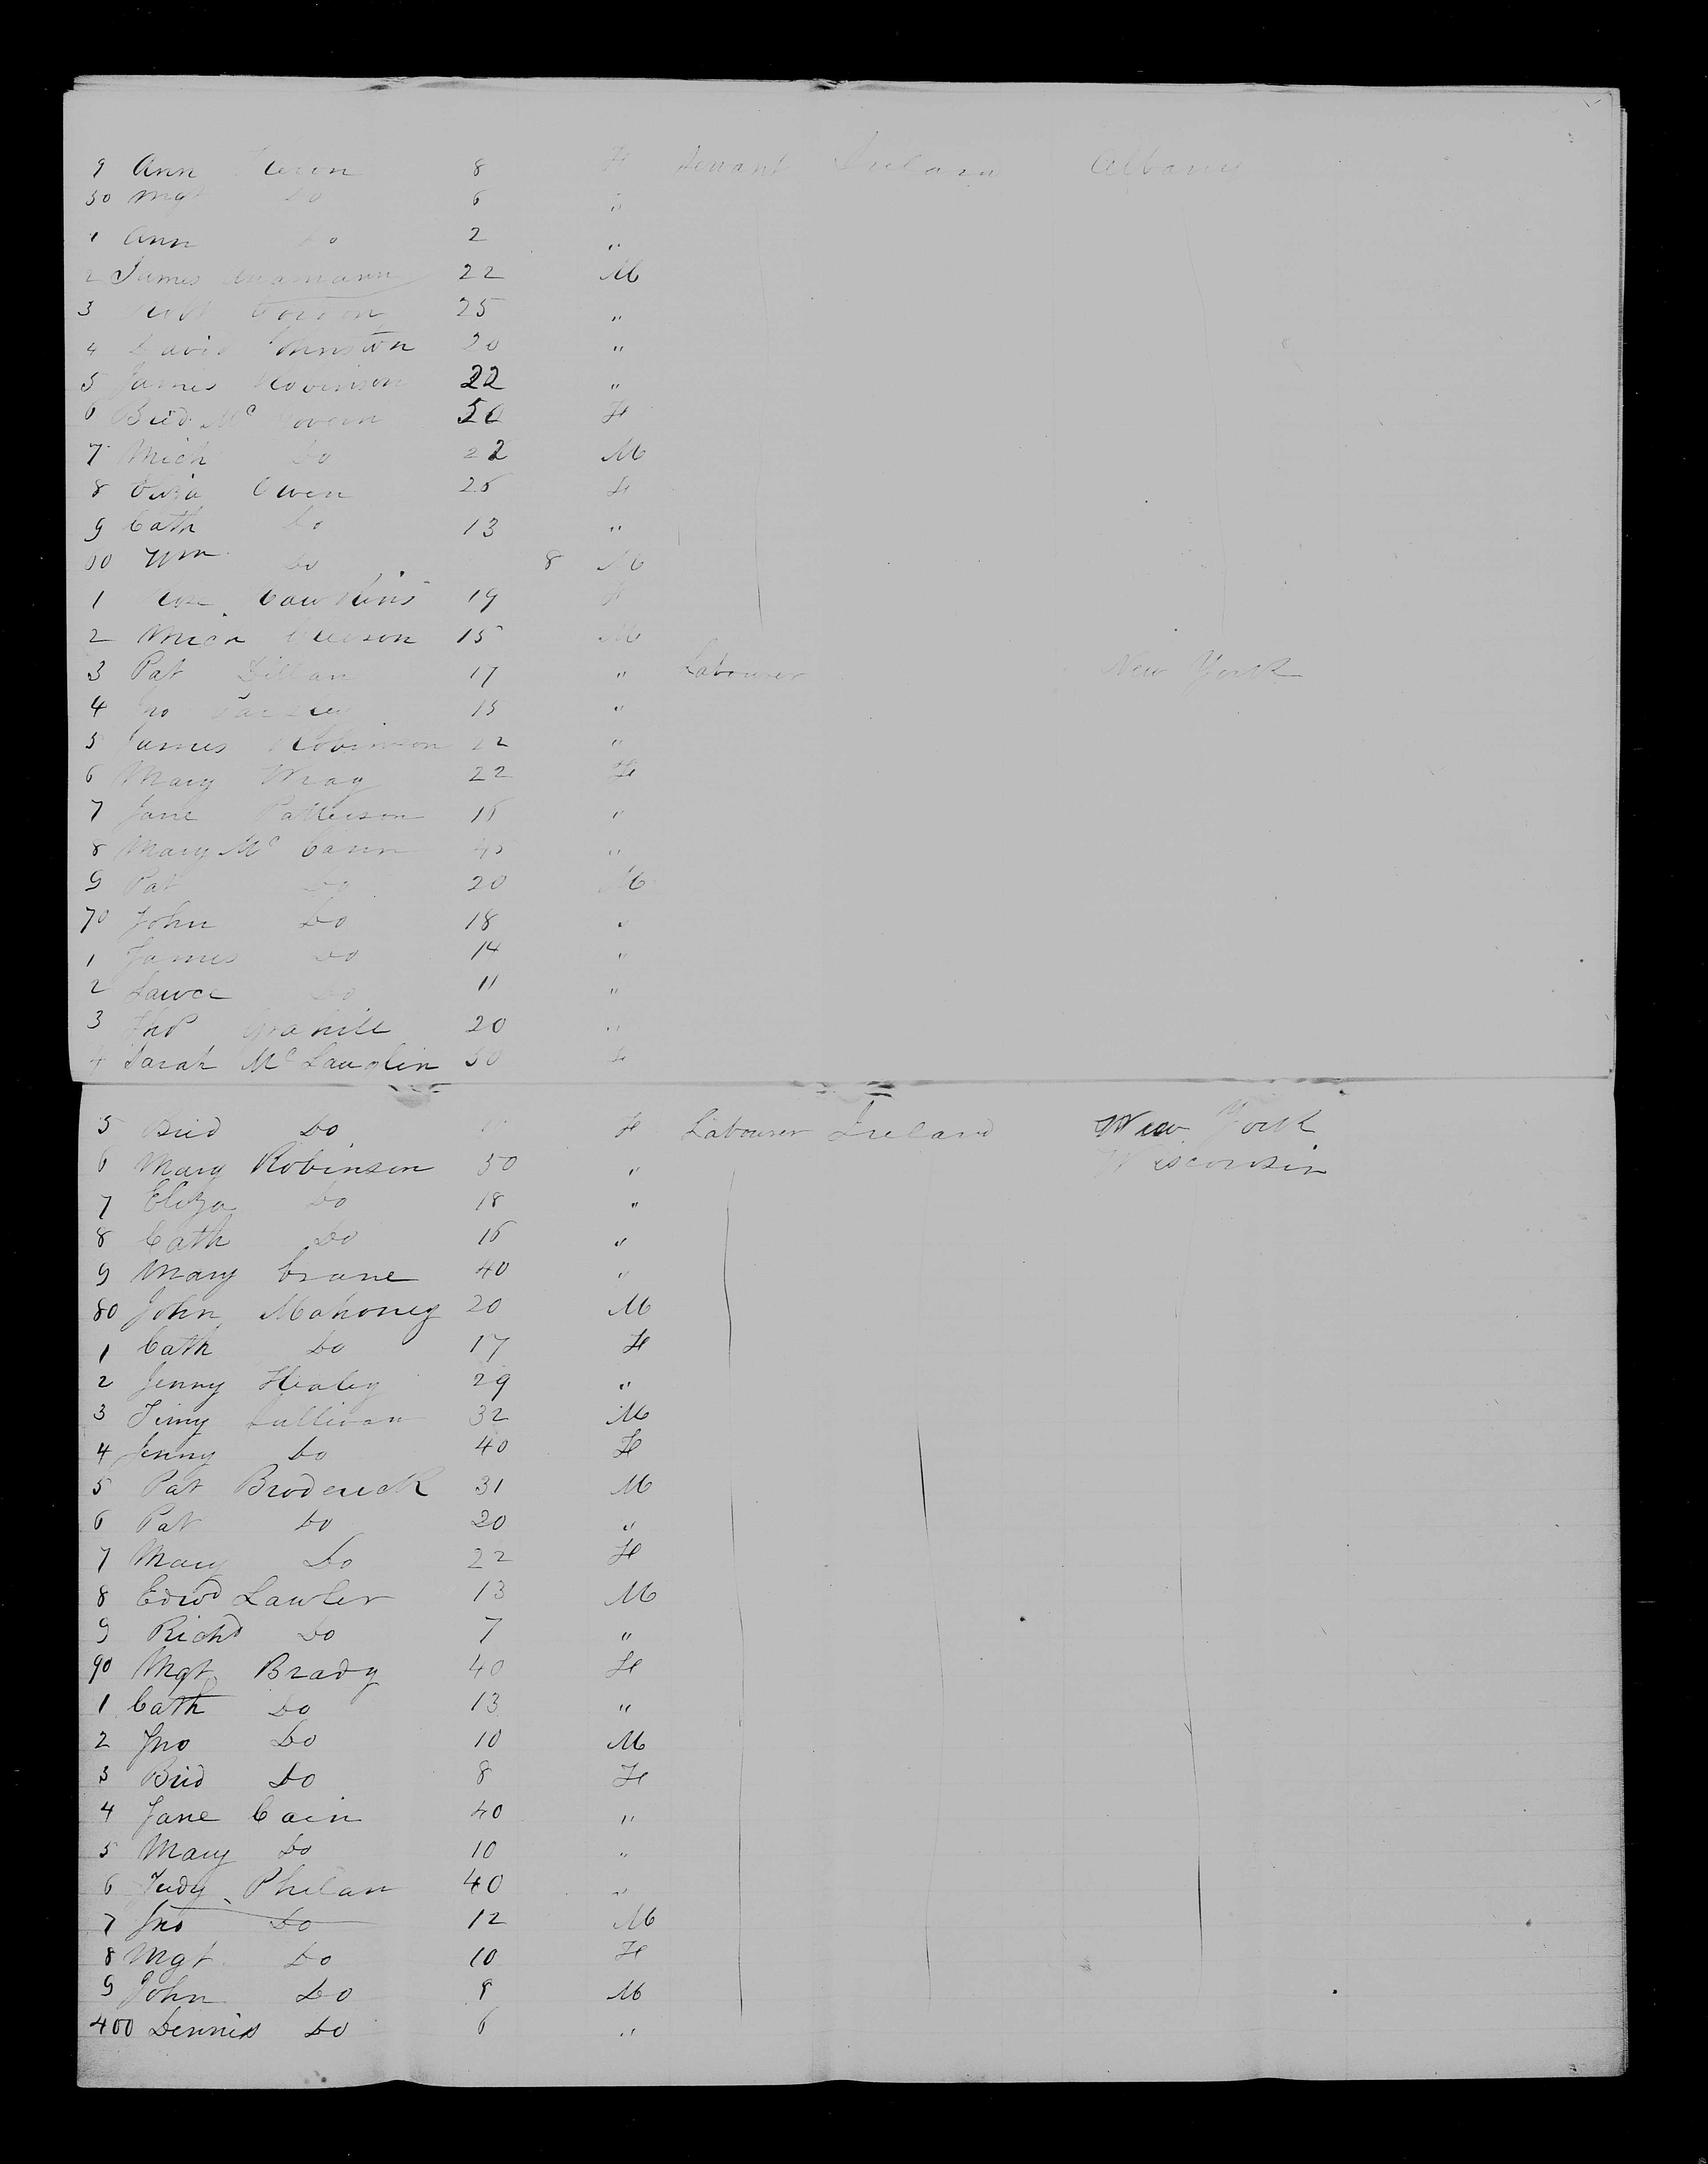 9 Ann 8 F Servant Ireland Albany
50 Mgt Do 6 "
1 Ann Do 2 "
2 James 22 M
3 25 "
4 David Johnston 20 "
5 James Robinson 22 "
6 Brid Mc Govern 50 F
7 Mich Do 22 M
8 Eliza Owen 25 F
9 Cath Do 13 "
60 Wm Do 8 M
1 Cawkins 19 F
2 Mich 15 M
3 Pat Dillan 17 " Labourer New York
4 Jno 15 "
5 James Robinson 22 "
6 Mary Wray 22 F
7 Jane Patterson 16 "
8 Mary Mc Cann 45 "
9 Pat Do 20 M
70 John Do 18 "
1 James Do 14 "
2 Lawce Do 11 "
3 Thos Grahill 20 "
4 Sarah Mc Lauglin 50 F
5 Brid Do F Labourer Ireland New York
6 Mary Robinson 50 " Wisconsin
7 Eliza Do 18 "
8 Cath Do 16 "
9 Mary Crane 40 "
80 John Mahoney 20 M
1 Cath Do 17 F
2 Jenny Healey 29 "
3 Timy Sullivan 32 M
4 Jenny Do 40 F
5 Pat Broderick 31 M
6 Pat Do 20 "
7 Mary Do 22 F
8 Edwd Lawler 13 M
9 Richd Do 7 "
90 Mgt Brady 40 F
1 Cath Do 13 "
2 Jno Do 10 M
3 Brid Do 8 F
4 Jane Cain 40 "
5 Mary Do 10 "
6 Judy Philan 40 "
7 Jno Do 12 M
8 Mgt Do 10 F
9 John Do 8 M
400 Dennis Do 6 "